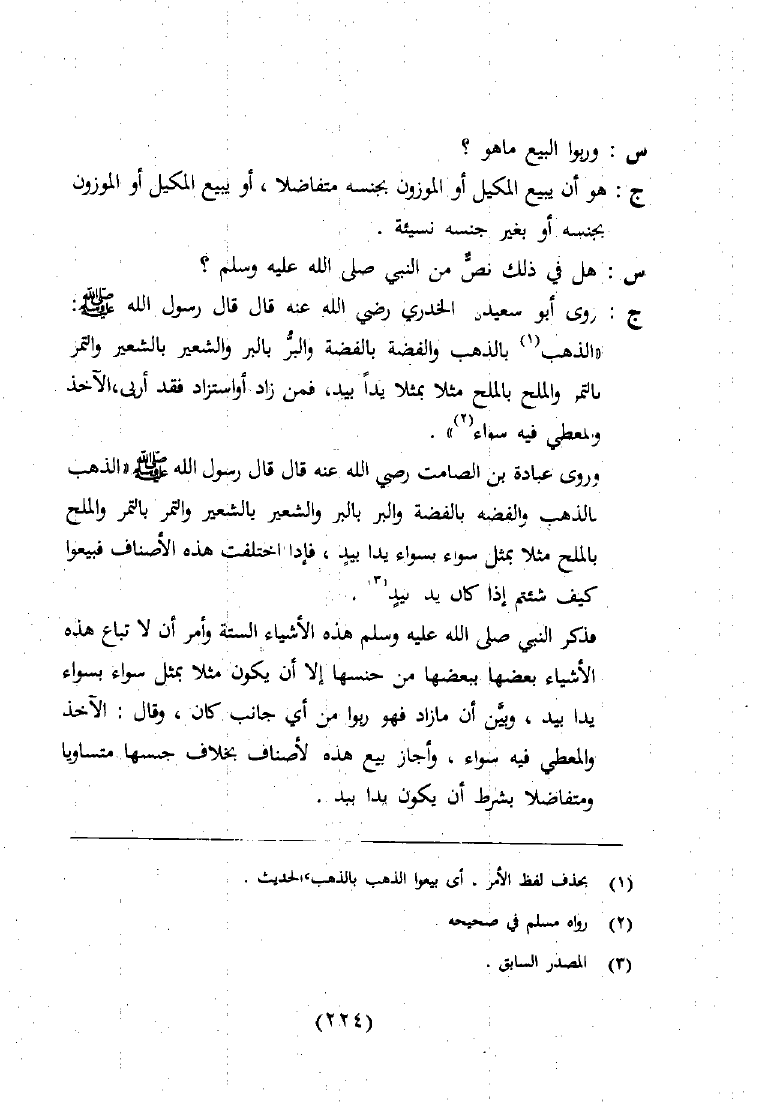 س : وربوا البيع ماهو ؟
ج : هو أن يبيع المكيل أو الموزون بجنسه متفاضلا ، أو يبيع المكيل أو الموزون
بجنسه أو بغير جنسه نسيئة .
س : هل في ذلك نصٌّ من النبي صلى الله عليه وسلم ؟
ج : روى أبو سعيد الخدري رضي الله عنه قال قال رسول الله ﷺ :
«الذهب(١) بالذهب والفضة بالفضة والبرُّ بالبر والشعير بالشعير والتمر
بالتمر والملح بالملح مثلا بمثلا يداً بيد، فمن زاد أواستزاد فقد أربى،الآخذ
والمعطي فيه سواء(٢)» .
وروى عبادة بن الصامت رضي الله عنه قال قال رسول الله ﷺ «الذهب
بالذهب والفضه بالفضة والبر بالبر والشعير بالشعير والتمر بالتمر والملح
بالملح مثلا بمثل سواء بسواء يدا بيدٍ ، فإذا اختلفت هذه الأصناف فبيعوا
كيف شئتم إذا كان يد بيدٍ(٣) .
فذكر النبي صلى الله عليه وسلم هذه الأشياء الستة وأمر أن لا تباع هذه
الأشياء بعضها ببعضها من جنسها إلا أن يكون مثلا بمثل سواء بسواء
يدا بيد ، وبيَّن أن مازاد فهو ربوا من أي جانب كان ، وقال : الآخذ
والمعطي فيه سواء ، وأجاز بيع هذه لأصناف بخلاف جنسها متساويا
ومتفاضلا بشرط أن يكون يدا بيد .
(١) بحذف لفظ الأمر . أى بيعوا الذهب بالذهب،الحديث .
(٢) رواه مسلم في صحيحه
(٣) المصدر السابق .
(٢٢٤)